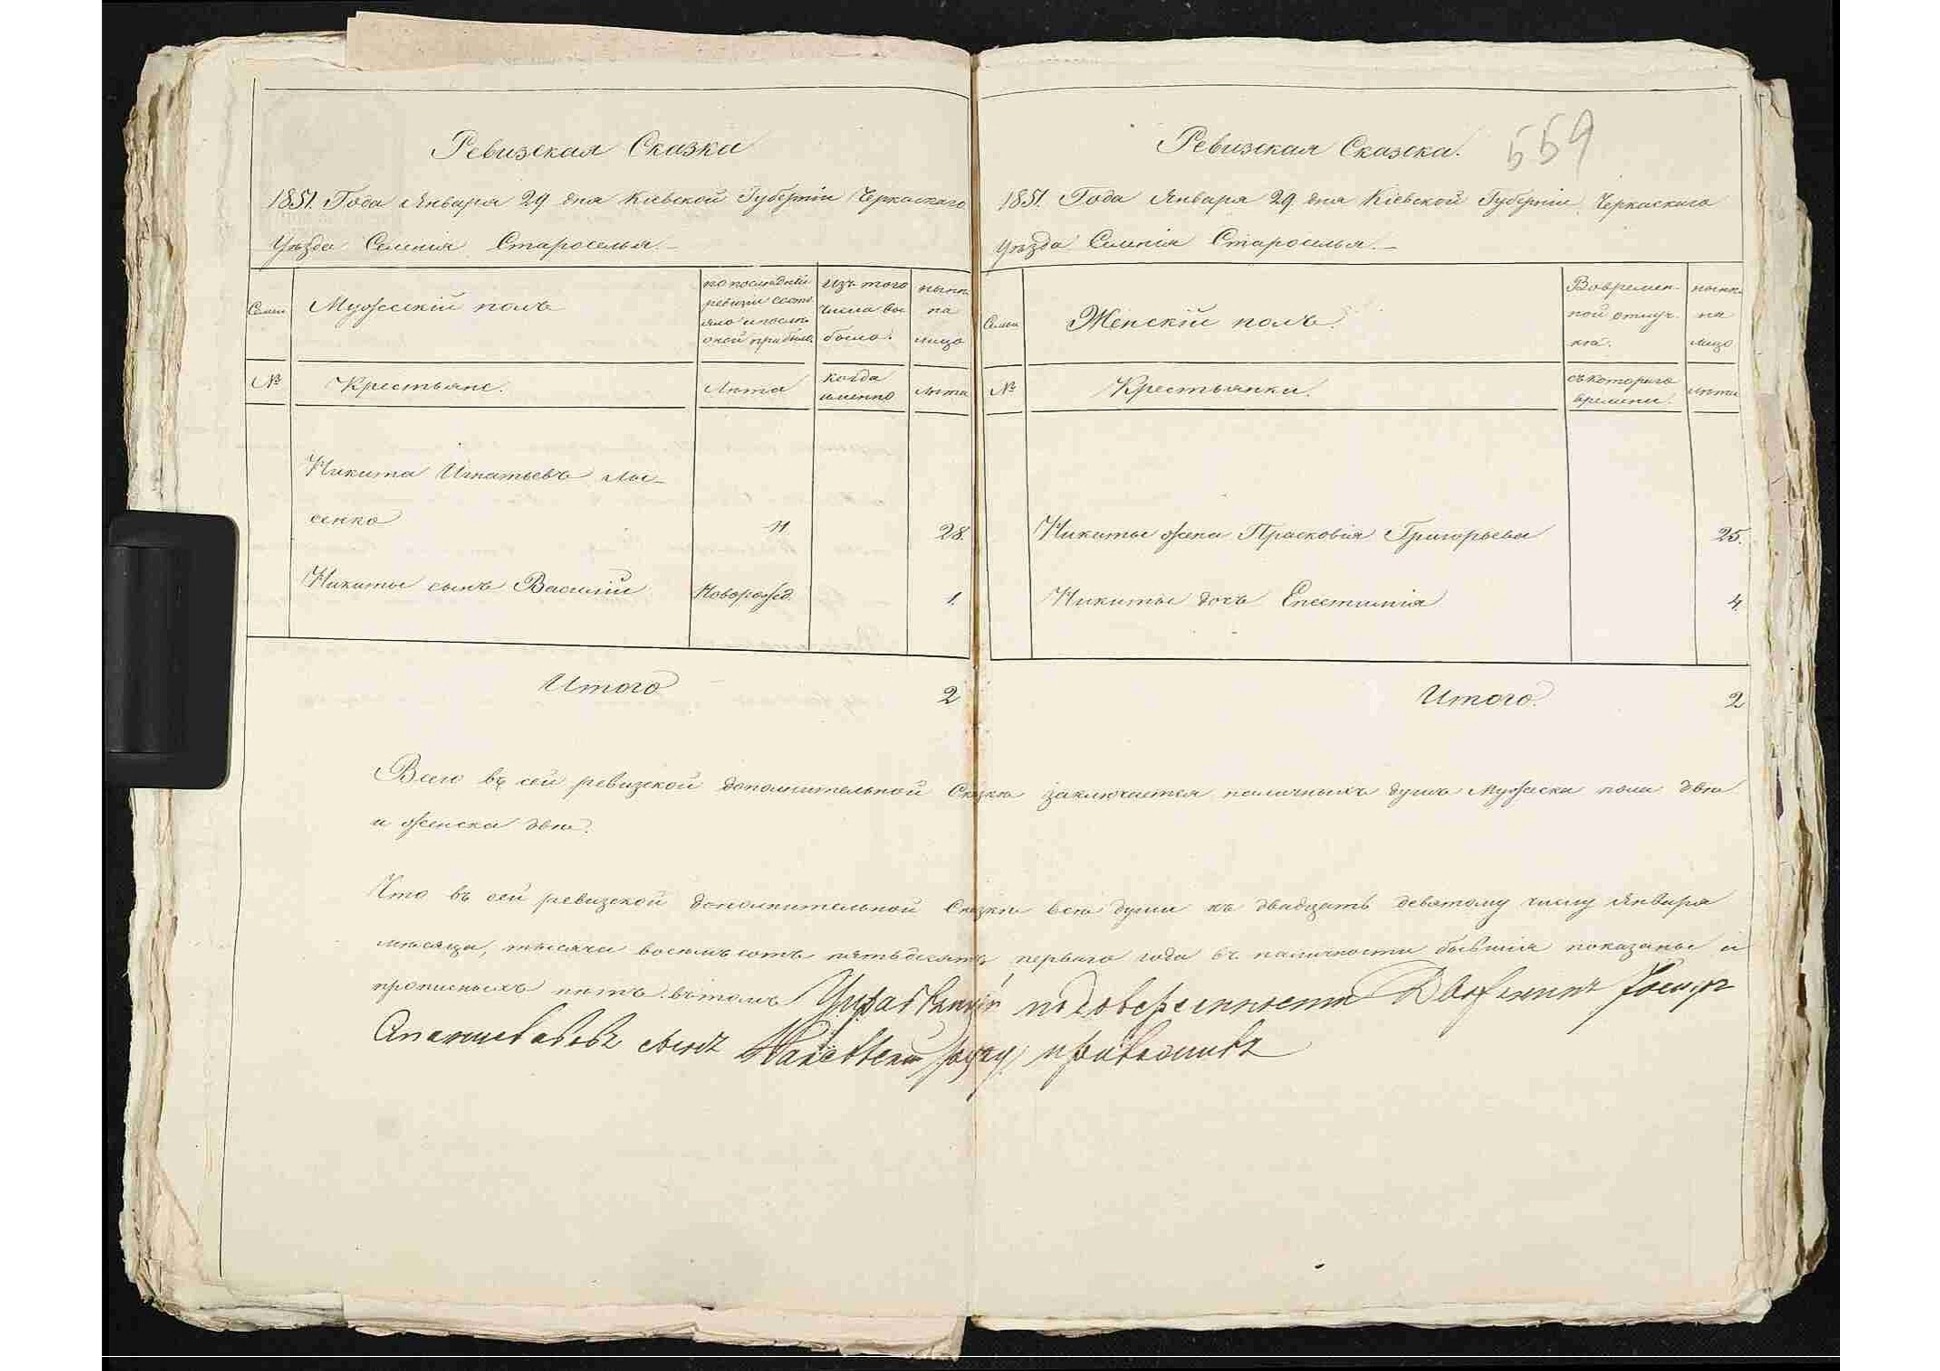 Ревизская Сказка
1851. Года Января 29 дня Кіевской Губерніи Черкаскаго
Уѣзда Селенія Староселья.
Семьи
Мужескій полъ
по послѣдней
ревизіи состо
яло и послѣ
оной прибыло.
Изъ того
числа вы
было.
нынѣ
на
лицо
№
Крестьяне.
Лѣта
когда
именно
Лѣта
Никита Игнатьевъ Лы-
сенко
11.
28.
Никиты сынъ Василій
Новорожд.
1.
Итого
2
Ревизская Сказка.
559
1851. Года Января 29 дня Кіевской Губерніи Черкаскаго
Уѣзда Селенія Староселья.
Семьи
Женскій полъ.
Вовремен-
ной отлуч-
кѣ.
нынѣ
на
лицо
№
Крестьянки.
съ котораго
времени.
Лѣта
Никиты жена Прасковія Григорьева
25.
Никиты дочь Епестимія
4.
Итого.
2
Всего въ сей ревизской дополнительной Сказки заключается наличныхъ душъ Мужеска пола двѣ
и женска двѣ.
Что въ сей ревизской дополнительной Сказки всѣ души къ двадцать девятому числу Января
мѣсяца, тысяча восемьсотъ пятьдесятъ перваго года въ наличности бывшія показаны и
прописныхъ нѣтъ. вътомъ подовѣренности Дворянинъ Іосифъ
сынъ руку приложилъ